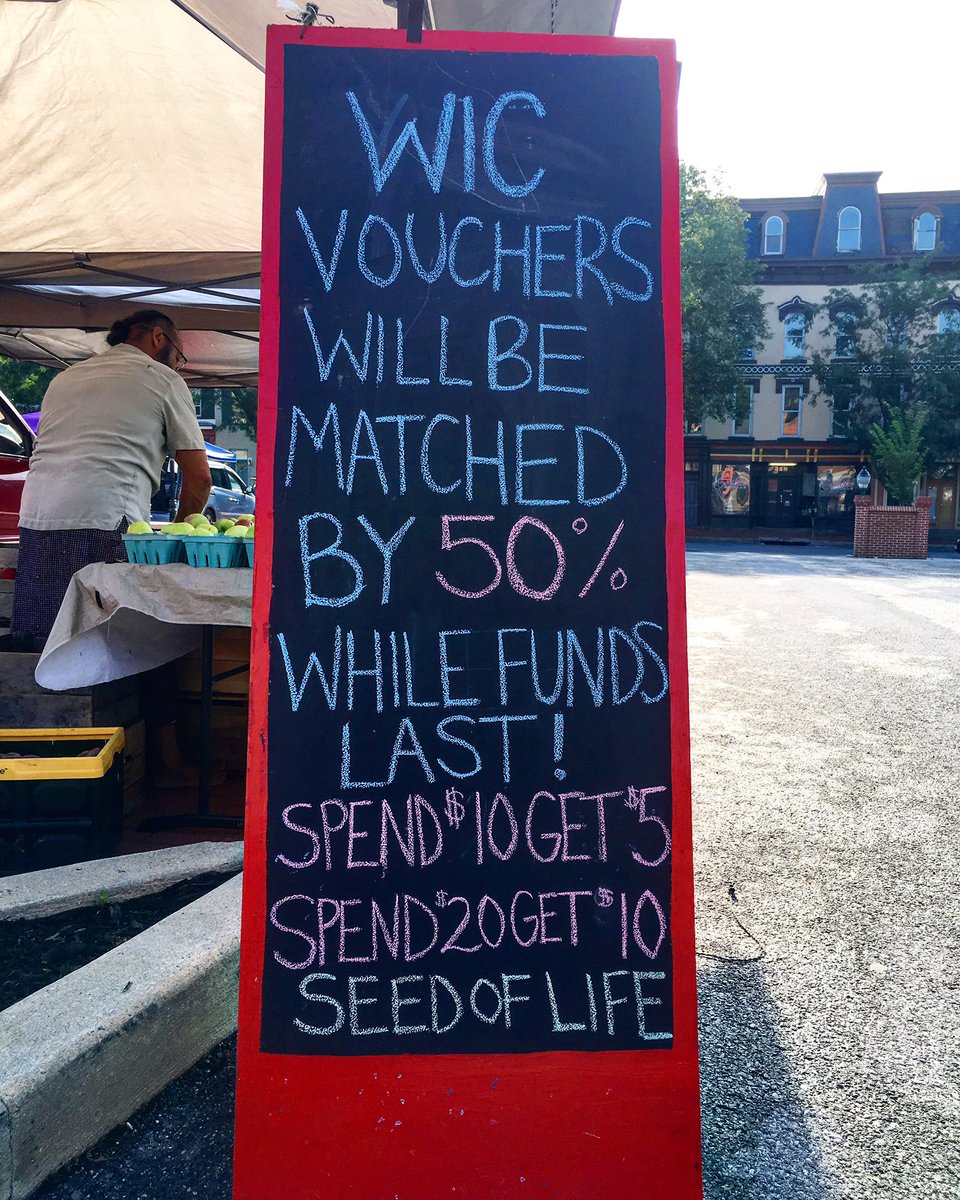 WIC
VOUCHERS
WILL BE
MATCHED
BY 50%
WHILE FUNDS
LAST!
SPEND $10 GET $5
SPEND $20 GET $10
SEED OF LIFE